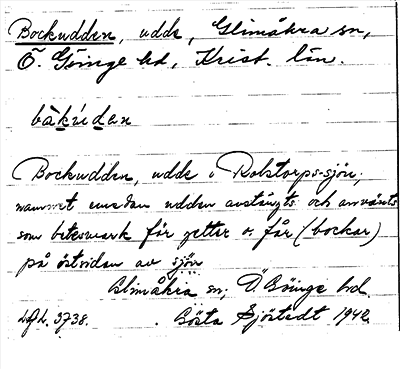 Bockudden, udde, Glimåkra sn,
Ö. Göinge hd, Krist. län.
båkúdən
Bockudden, udde i Rolstorps-sjön,
namnet emedan udden avstängts och använts
som betesmark för getter o. får (bockar)
på östsidan av sjön
Glimåkra sn; Ö. Göinge hd.
3738. Gösta Sjöstedt 1942